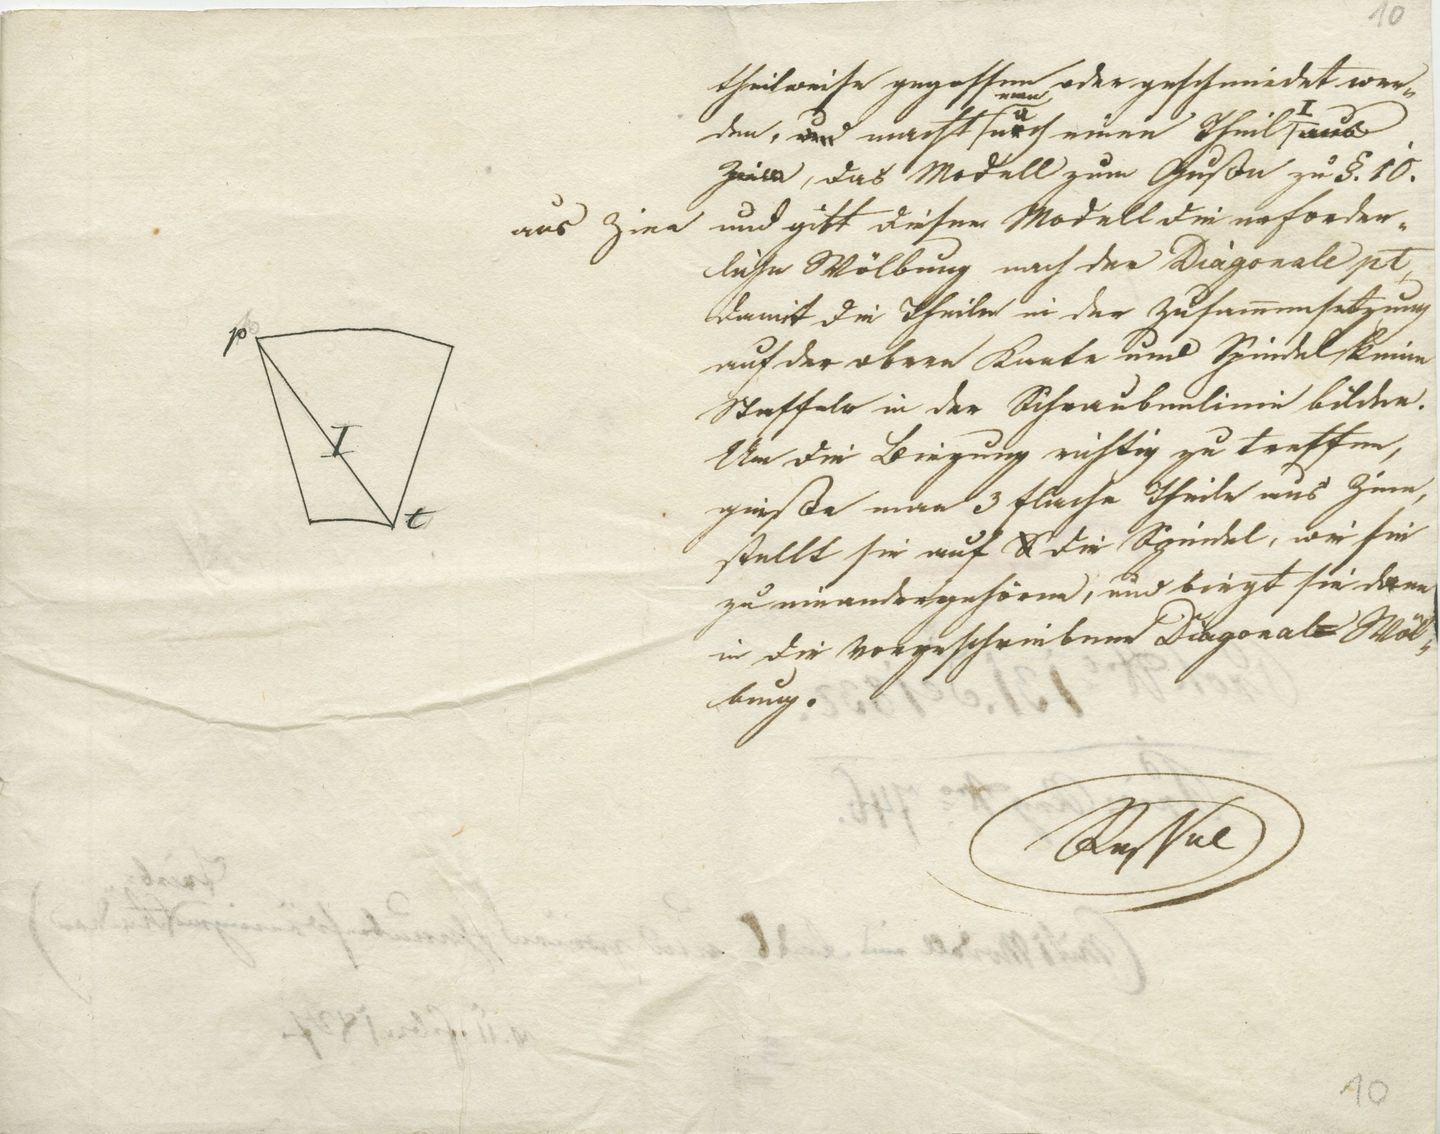 10
theilweise gegossen oder geschmiedet wer-
man
den, und macht nach einen Theil I aus
Zinn, das Modell zum Guße zu §. 10.
aus Zinn
und gibt diesem Modell die erforder-
liche Wölbung nach der Diagonale pt,
damit die Theile in der Zusammensetzung
auf der obern Kante und Spindel keine
Staffeln in der Schraubenlinie bilden.
Um die Biegung richtig zu treffen,
gieße man 3 flache Theile aus Zinn,
stellt sie auf die Spindel, wie sie
zu einandergehören, und biegt sie dann
in die vorgeschriebene Diagonal-Wöl-
bung.
p
I
t
Ressel
10